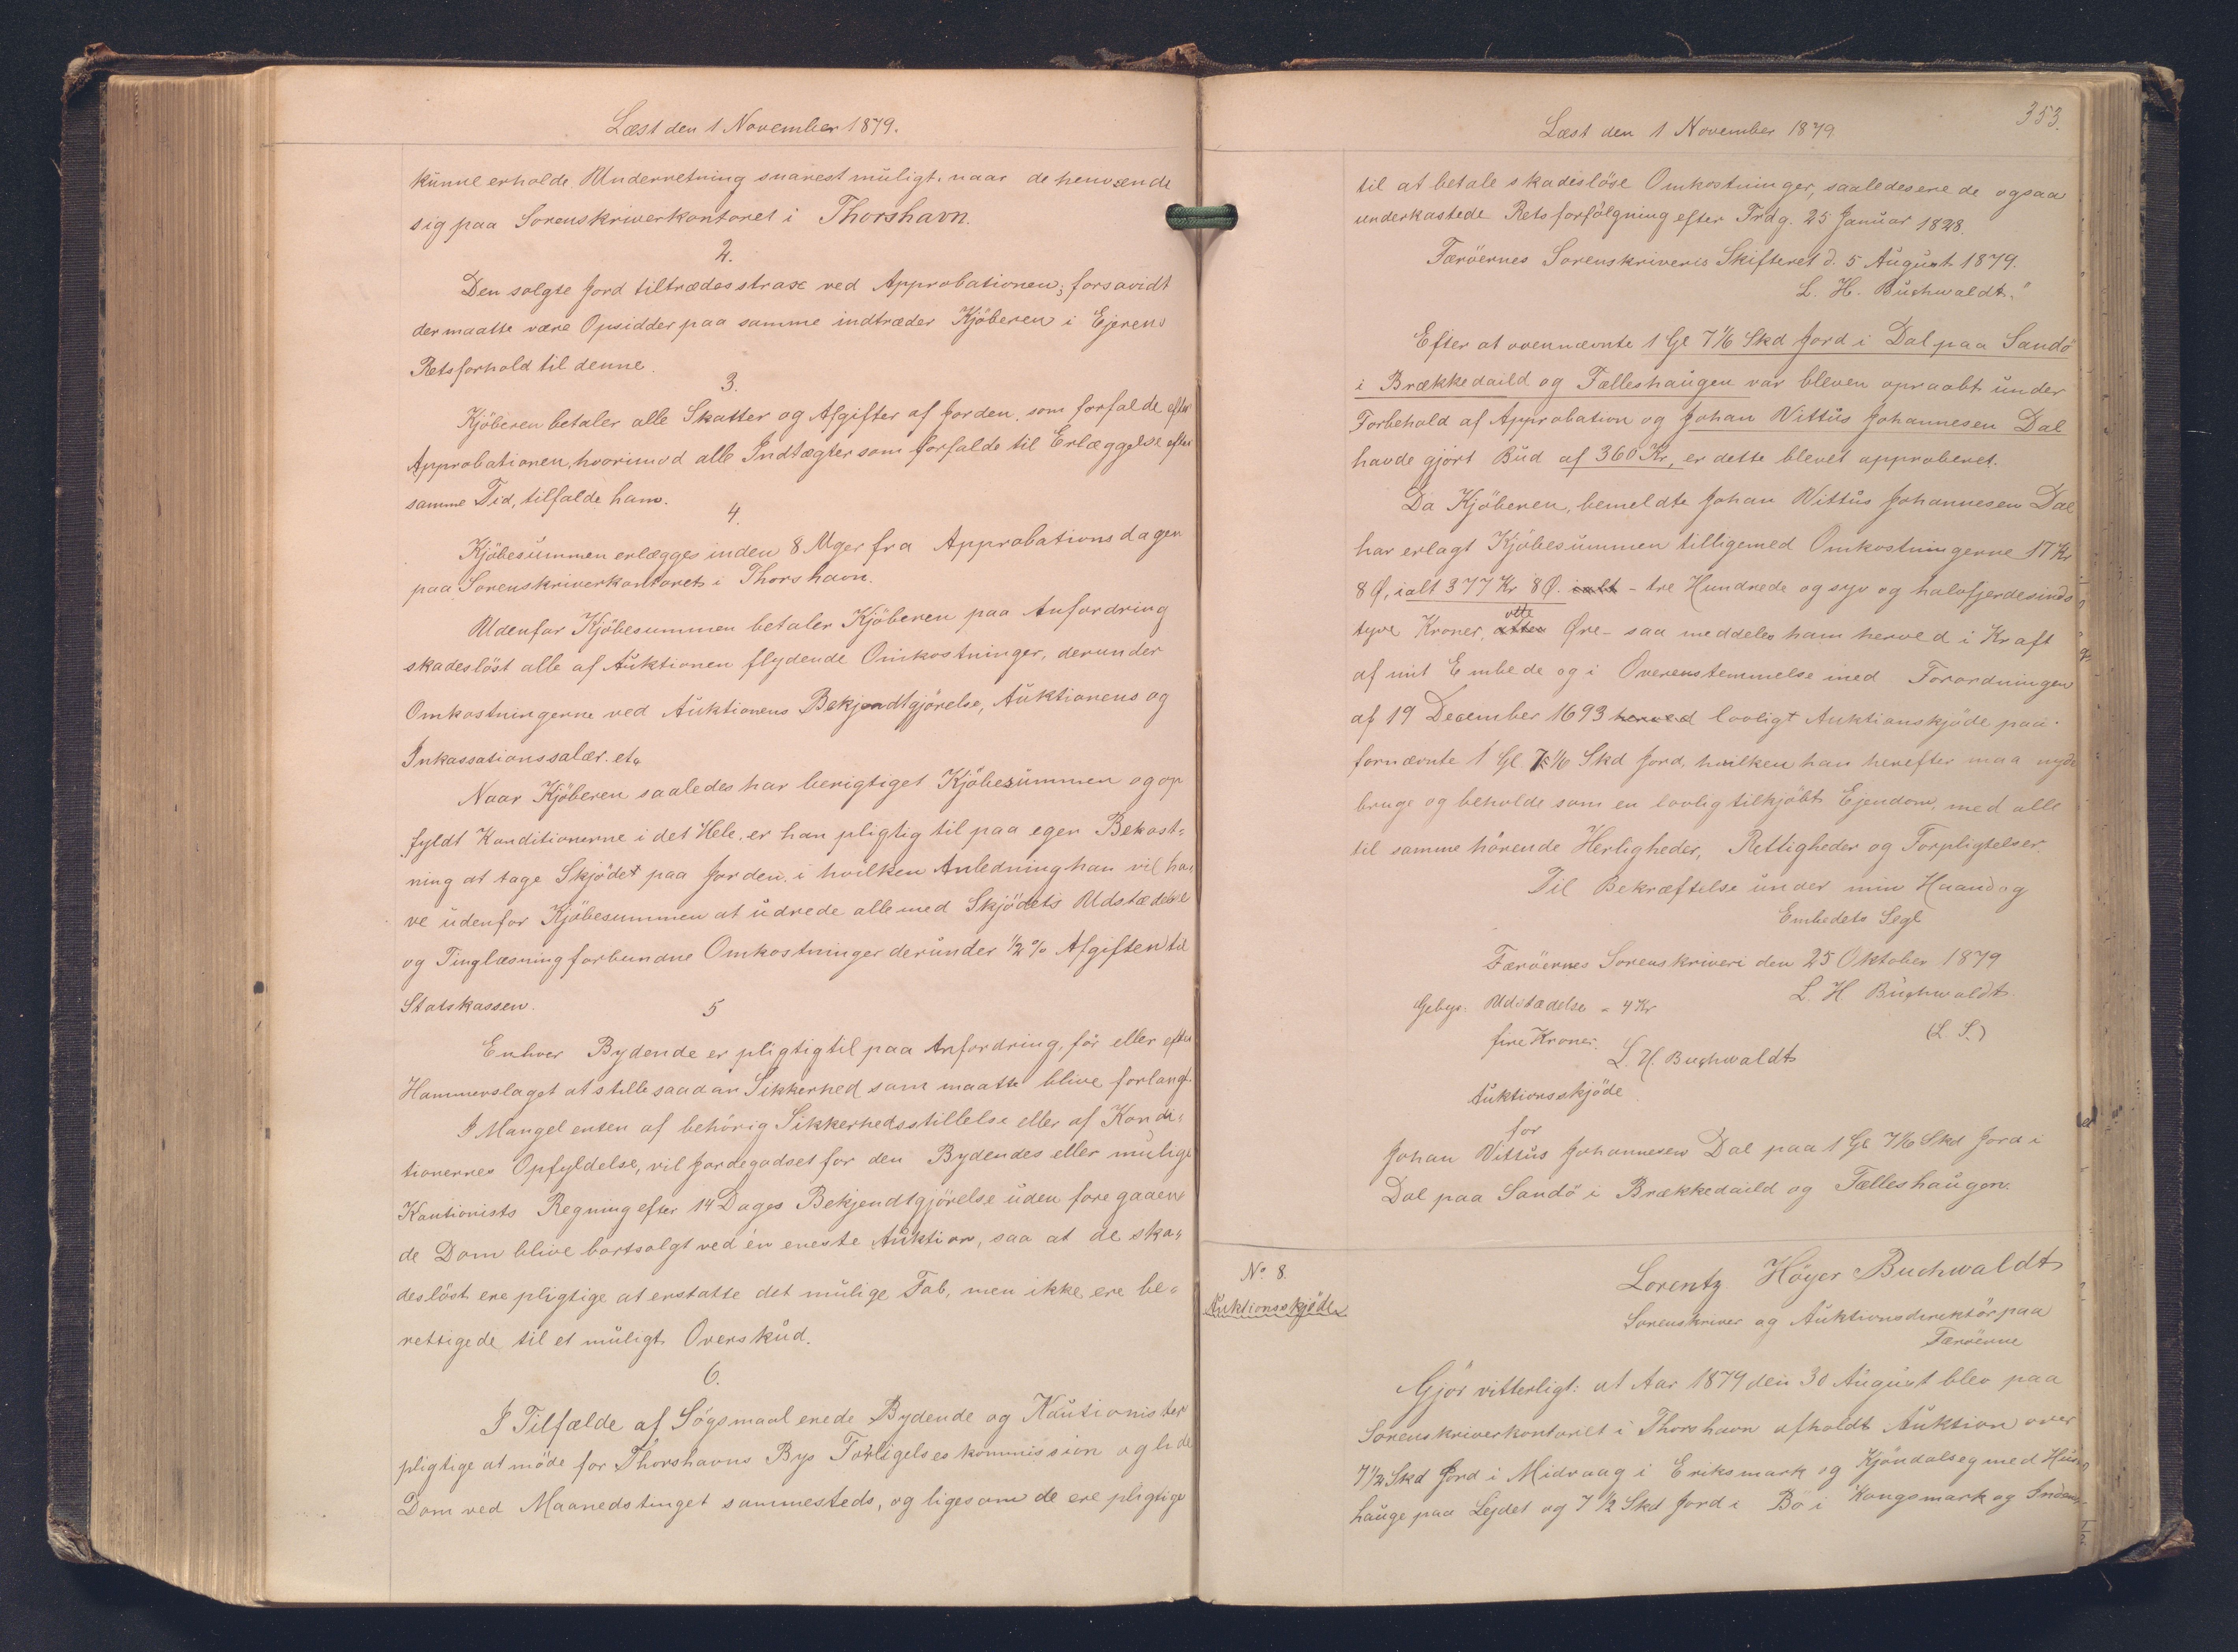 Læst den 1 November 1879.
kunne erholde Underretning snarest muligt, naar de henvende
sig paa Sorenskriverkontoret i Thorshavn.
2.
Den solgte Jord tiltrædes strax ved Approbationen; forsavidt
der maatte være Opsidder paa samme indtræder Kjöberen i Ejerens
Retsforhold til denne.
3.
Kjöberen betaler alle Skatter og Afgifter af Jorden, som forfalde efter
Approbationen, hvorimod alle Indtægter som forfalde til Erlæggelse efter
samme Tid, tilfalde ham.
4.
Kjöbesummen erlægges inden 8 Uger fra Approbationsdagen
paa Sorenskriverkontoret i Thorshavn.
Udenfor Kjöbesummen betaler Kjöberen paa Anfordring
skadeslöst alle af Auktionen flydende Omkostninger, derunder
Omkostningerne ved Auktionens Bekjendtgjörelse, Auktionens og
Inkassationssalær. etc
Naar Kjöberen saaledes har berigtiget Kjöbesummen og op
fyldt Konditionerne i det Hele, er han pligtig til paa egen Bekost=
ning at tage Skjödet paa Jorden, i hvilken Anledning han vil ha,
ve udenfor Kjöbesummen at udrede alle med Skjödets Udstædelse
og Tinglæsning forbundne Omkostninger derunder 1/2 % Afgiften til
Statskassen.
5
Enhver Bydende er pligtig til paa Anfordring, för eller efter
Hammerslaget at stille saadan Sikkerhed som maatte blive forlangt.
I Mangel enten af behörig Sikkerhedsstillelse eller af Kondi=
tionernes Opfyldelse, vil Jordegodset for den Bydendes eller mulige
Kautionists Regning efter 14 Dages Bekjendtgjörelse uden foregaaen,
de Dom blive bortsolgt ved én eneste Auktion, saa at de ska,,
deslöst ere pligtige at erstatte det mulige Tab, men ikke ere be=
rettigede til et muligt Overskud.
6.
I Tilfælde af Sögsmaal ere de Bydende og Kautionister
pligtige at möde for Thorshavns Bys Forligelseskommission og lide
Dom ved Maanedstinget sammesteds, og ligesom de ere pligtige
353.
Læst den 1 November 1879
til at betale skadeslöse Omkostninger, saaledes ere de ogsaa
underkastede Retsforfölgning efter Frdg. 25 Januar 1828.
Færöernes Sorenskriveris Skifteret d. 5 August 1879.
L. H. Buchwaldt."
Efter at ovennævnte 1 Gl 7 1/6 Skd Jord i Dal paa Sandö
i Brækkedaild og Fælleshaugen var bleven opraabt under
Forbehold af Approbation og Johan Vittus Johannesen Dal
havde gjort Bud af 360 Kr, er dette blevet approberet.
Da Kjöberen, bemeldte Johan Vittus Johannesen Dal
har erlagt Kjöbesummen tilligemed Omkostningerne 17 Kr
8 Ø, ialt 377 Kr 8 Ø. ialt - tre Hundrede og syv og halvfjerdesinds
tyve Kroner, otte Øre - saa meddeles ham herved i Kraft
af mit Embede og i Overensstemmelse med Forordningen
af 19 December 1693 herved lovligt Auktionskjöde paa
fornævnte 1 Gl. 7 1/6 Skd Jord, hvilken han herefter maa nyde
bruge og beholde som en lovlig tilkjöbt Ejendom, med alle
til samme hörende Herligheder, Rettigheder og Forpligtelser.
Til Bekræftelse under min Haand og
Embedets Segl
Færöernes Sorenskriveri den 25 Oktober 1879
L. H. Buchwaldt
Gebyr. Udstædelse - 4 Kr
(L. S.)
fire Kroner.
L. H. Buchwaldt
Auktionsskjöde
for
Johan Vittus Johannesen Dal paa 1 Gl 7 1/6 Skd Jord i
Dal paa Sandö i Brækkedaild og Fælleshaugen.
No. 8.
Auktionsskjöde
Lorentz Höyer Buchwaldt
Sorenskriver og Auktionsdirektör paa
Færöerne
Gjör vitterligt: at Aar 1879 den 30 August blev paa
Sorenskriverkontoret i Thorshavn afholdt Auktion over
7 1/2 Skd Jord i Midvaag i Eriksmark og Kjöndalseg med Huus
hauge paa Lejdet og 7 1/2 Skd Jord i Bö i Kongsmark og